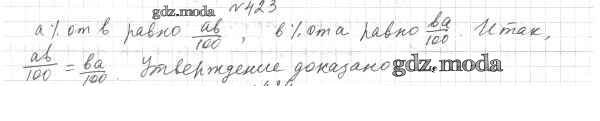 gdz.moda №423
a % от в равно ав/100, в % от а равно ва/100. Итак,
ав/100 = ва/100. Утверждение доказано gdz.moda